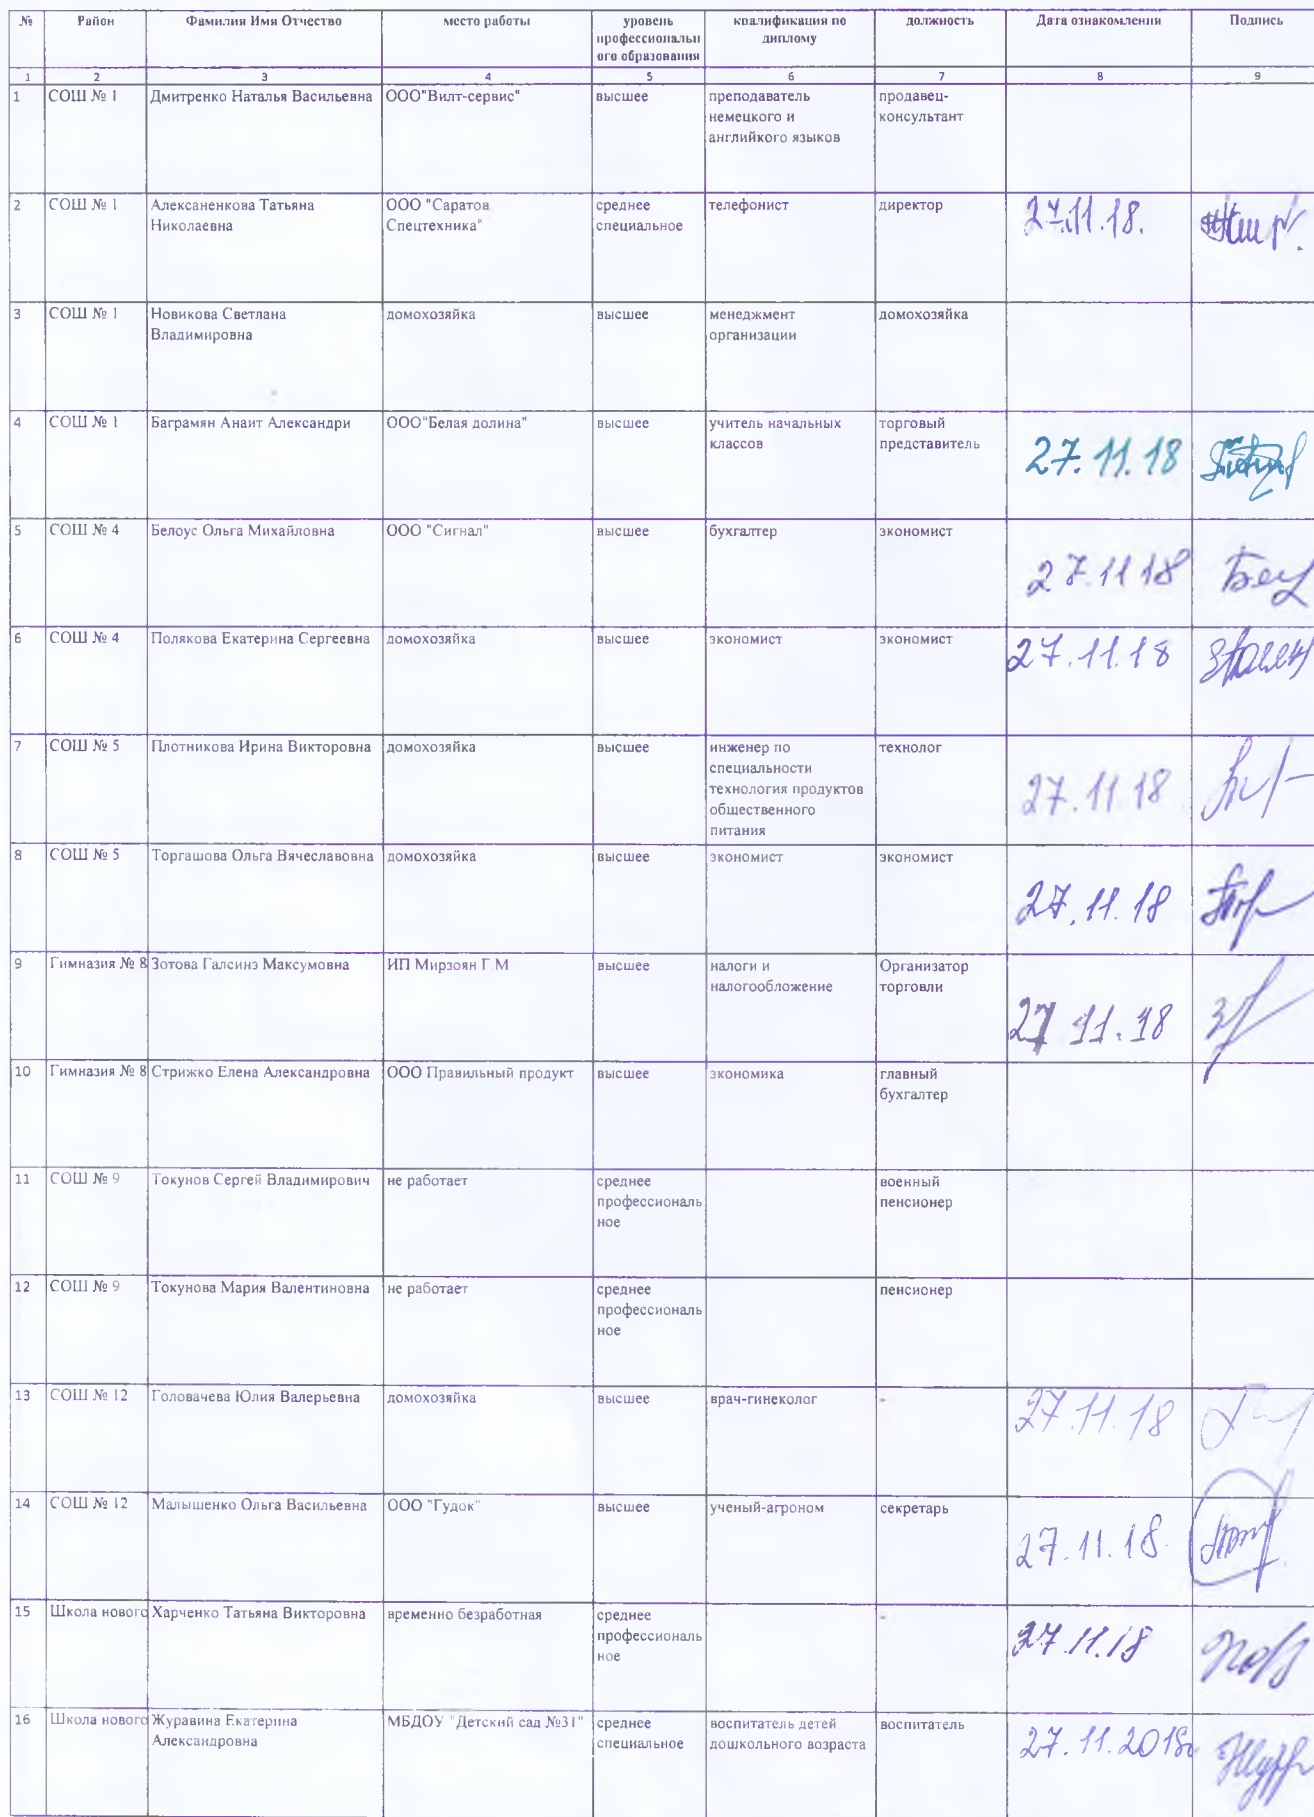 № Район Фамилия Имя Отчество место работы уровень профессиональн ого образования квалификация по диплому должность Дата ознакомления Подпись
1 2 3 4 5 6 7 8 9
1 СОШ № 1 Дмитренко Наталья Васильевна ООО"Вилт-сервис" высшее преподаватель немецкого и английкого языков продавец-консультант
2 СОШ № 1 Алексаненкова Татьяна Николаевна ООО "Саратов Спецтехника" среднее специальное телефонист директор 27.11.18.
3 СОШ № 1 Новикова Светлана Владимировна домохозяйка высшее менеджмент организации домохозяйка
4 СОШ № 1 Баграмян Анаит Александри ООО"Белая долина" высшее учитель начальных классов торговый представитель 27.11.18
5 СОШ № 4 Белоус Ольга Михайловна ООО "Сигнал" высшее бухгалтер экономист 27.11 18
6 СОШ № 4 Полякова Екатерина Сергеевна домохозяйка высшее экономист экономист 27.11.18
7 СОШ № 5 Плотникова Ирина Викторовна домохозяйка высшее инженер по специальности технология продуктов общественного питания технолог 27.11.18
8 СОШ № 5 Торгашова Ольга Вячеславовна домохозяйка высшее экономист экономист 27.11.18
9 Гимназия № 8 Зотова Галсинэ Максумовна ИП Мирзоян Г.М высшее налоги и налогообложение Организатор торговли 27 11.18
10 Гимназия № 8 Стрижко Елена Александровна ООО Правильный продукт высшее экономика главный бухгалтер
11 СОШ № 9 Токунов Сергей Владимирович не работает среднее профессиональ ное военный пенсионер
12 СОШ № 9 Токунова Мария Валентиновна не работает среднее профессиональ ное пенсионер
13 СОШ № 12 Головачева Юлия Валерьевна домохозяйка высшее врач-гинеколог - 27.11.18
14 СОШ № 12 Малышенко Ольга Васильевна ООО "Гудок" высшее ученый-агроном секретарь 27.11.18.
15 Школа нового Харченко Татьяна Викторовна временно безработная среднее профессиональ ное - 27.11.18
16 Школа нового Журавина Екатерина Александровна МБДОУ "Детский сад №31" среднее специальное воспитатель детей дошкольного возраста воспитатель 27.11.2018г